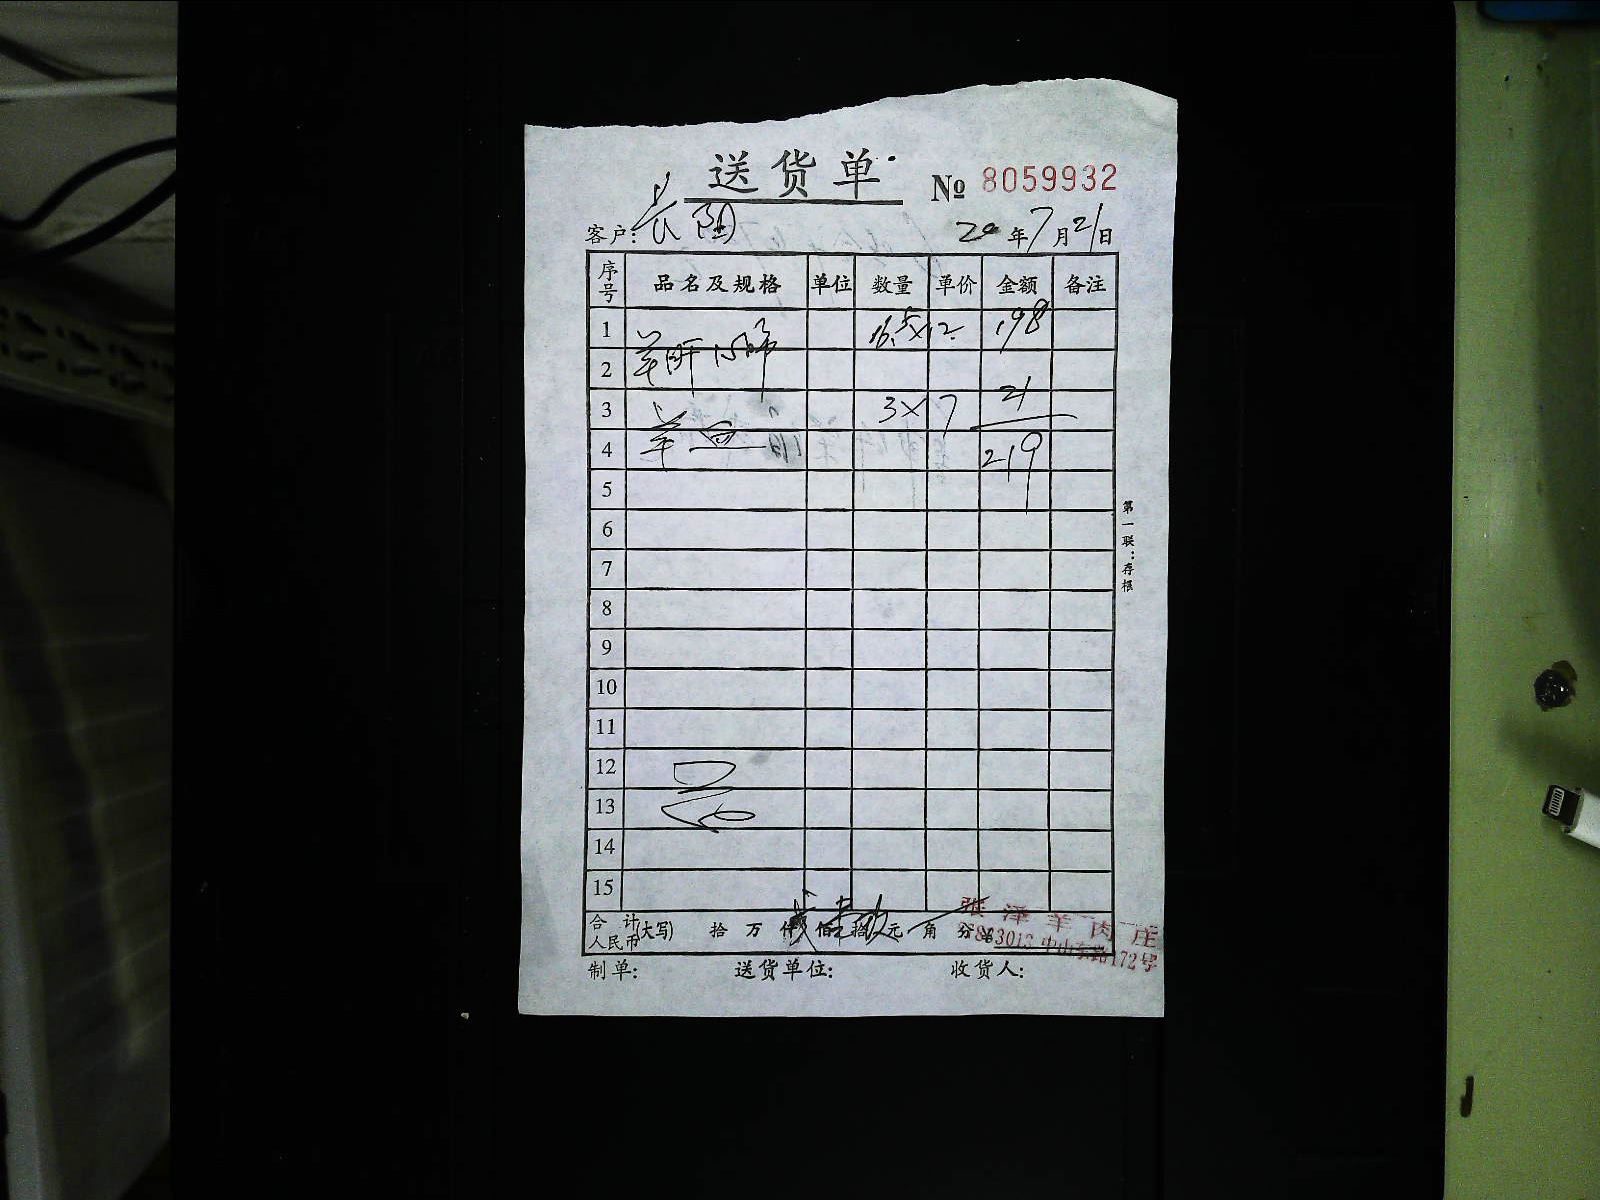 送货单
№ 8059932
客户: 长阳 20年7月21日
序号 品名及规格 单位 数量 单价 金额 备注
1 羊肝心肺 16.5×12 198
2
3 羊血 3×7 21
4 219
5
6
7
8
9
10
11
12
13
14
15
合计人民币(大写) 拾 万 仟 佰 拾 元 角 分 ¥
张泽羊肉庄
中山东路172号
制单: 送货单位: 收货人:
第一联:存根